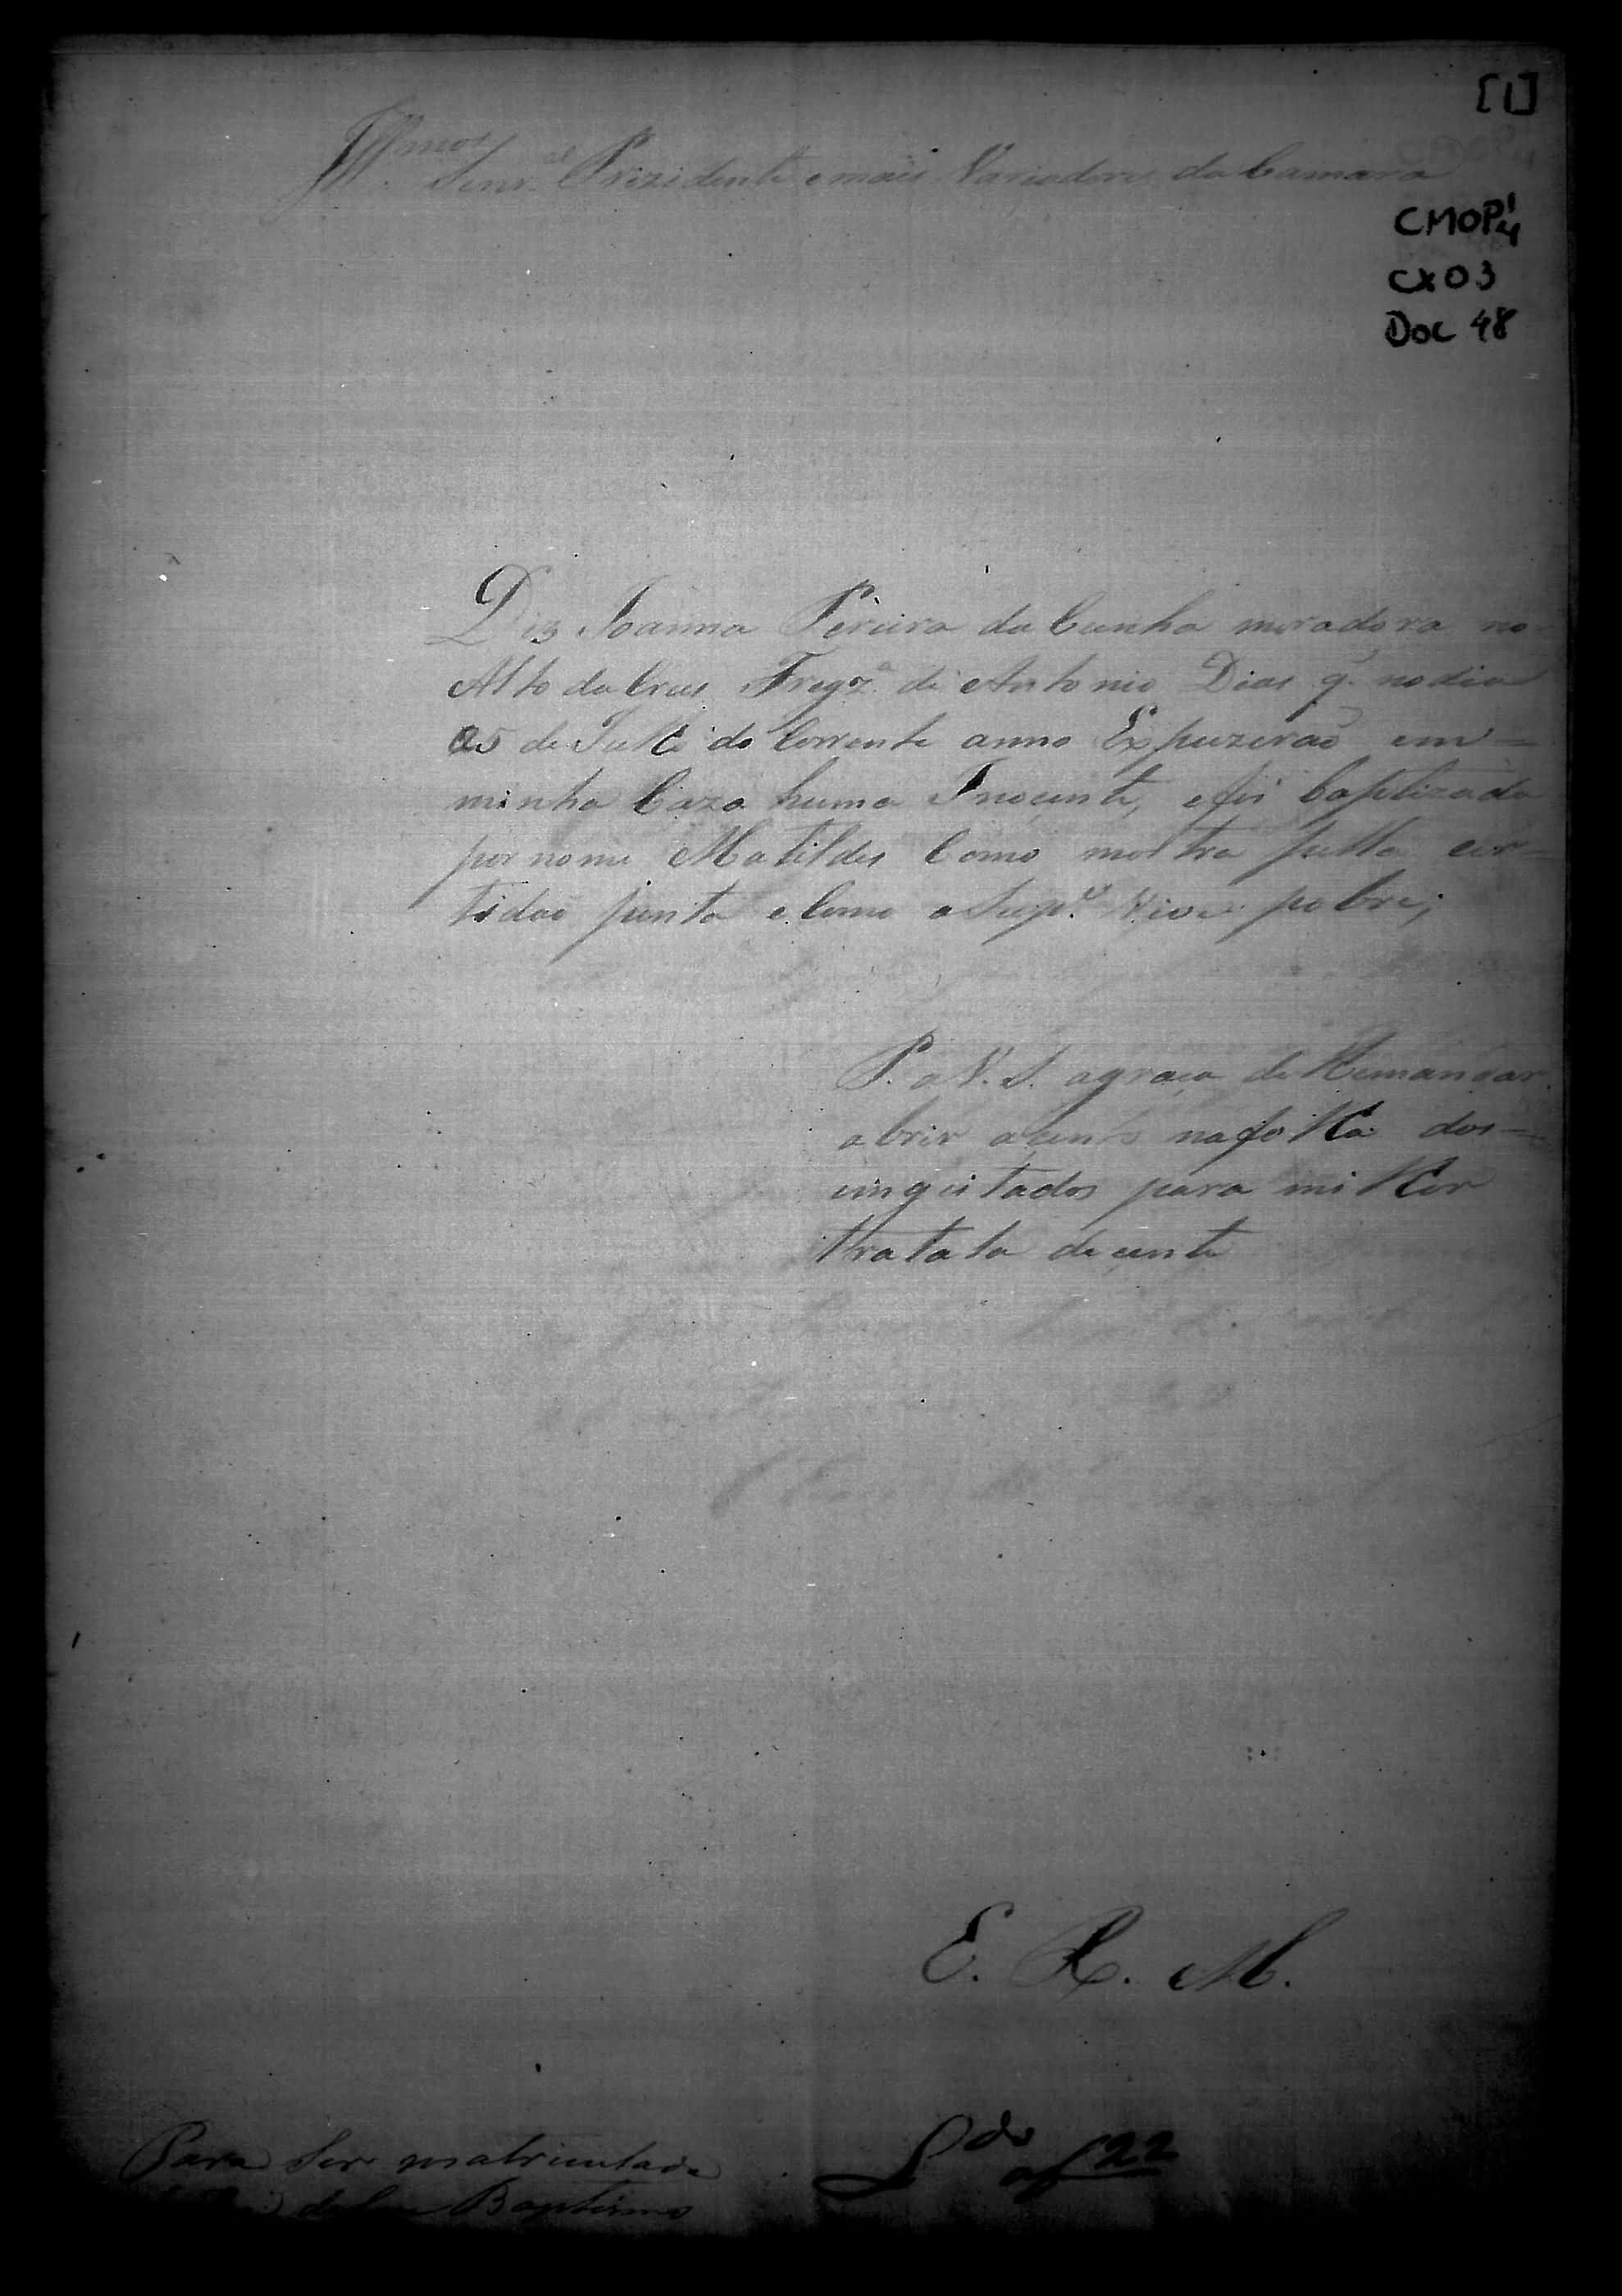 [1]
Illmos Senr.es Prizidente e mais Variadores da Camara
CMOP 1/4
CX 03
Doc 48
Diz Joanna Pereira da Cunha moradora no
Alto da Crus Fregz.a de Antonio Dias q. no dia
25 de Julho do Corrente anno Expuzerão em =
minha Caza huma Inocente, e foi baptizada
por nome Matildes Como mostra pella cer=
tidão junta e Como a Sup.e Vive pobre;
P. a V. S. a graça de lhe mandar
abrir acento na folha dos =
emgeitados para milhor
tratala decente
E. R. M.
Para ser matriculada
Baptismo
L do af 22